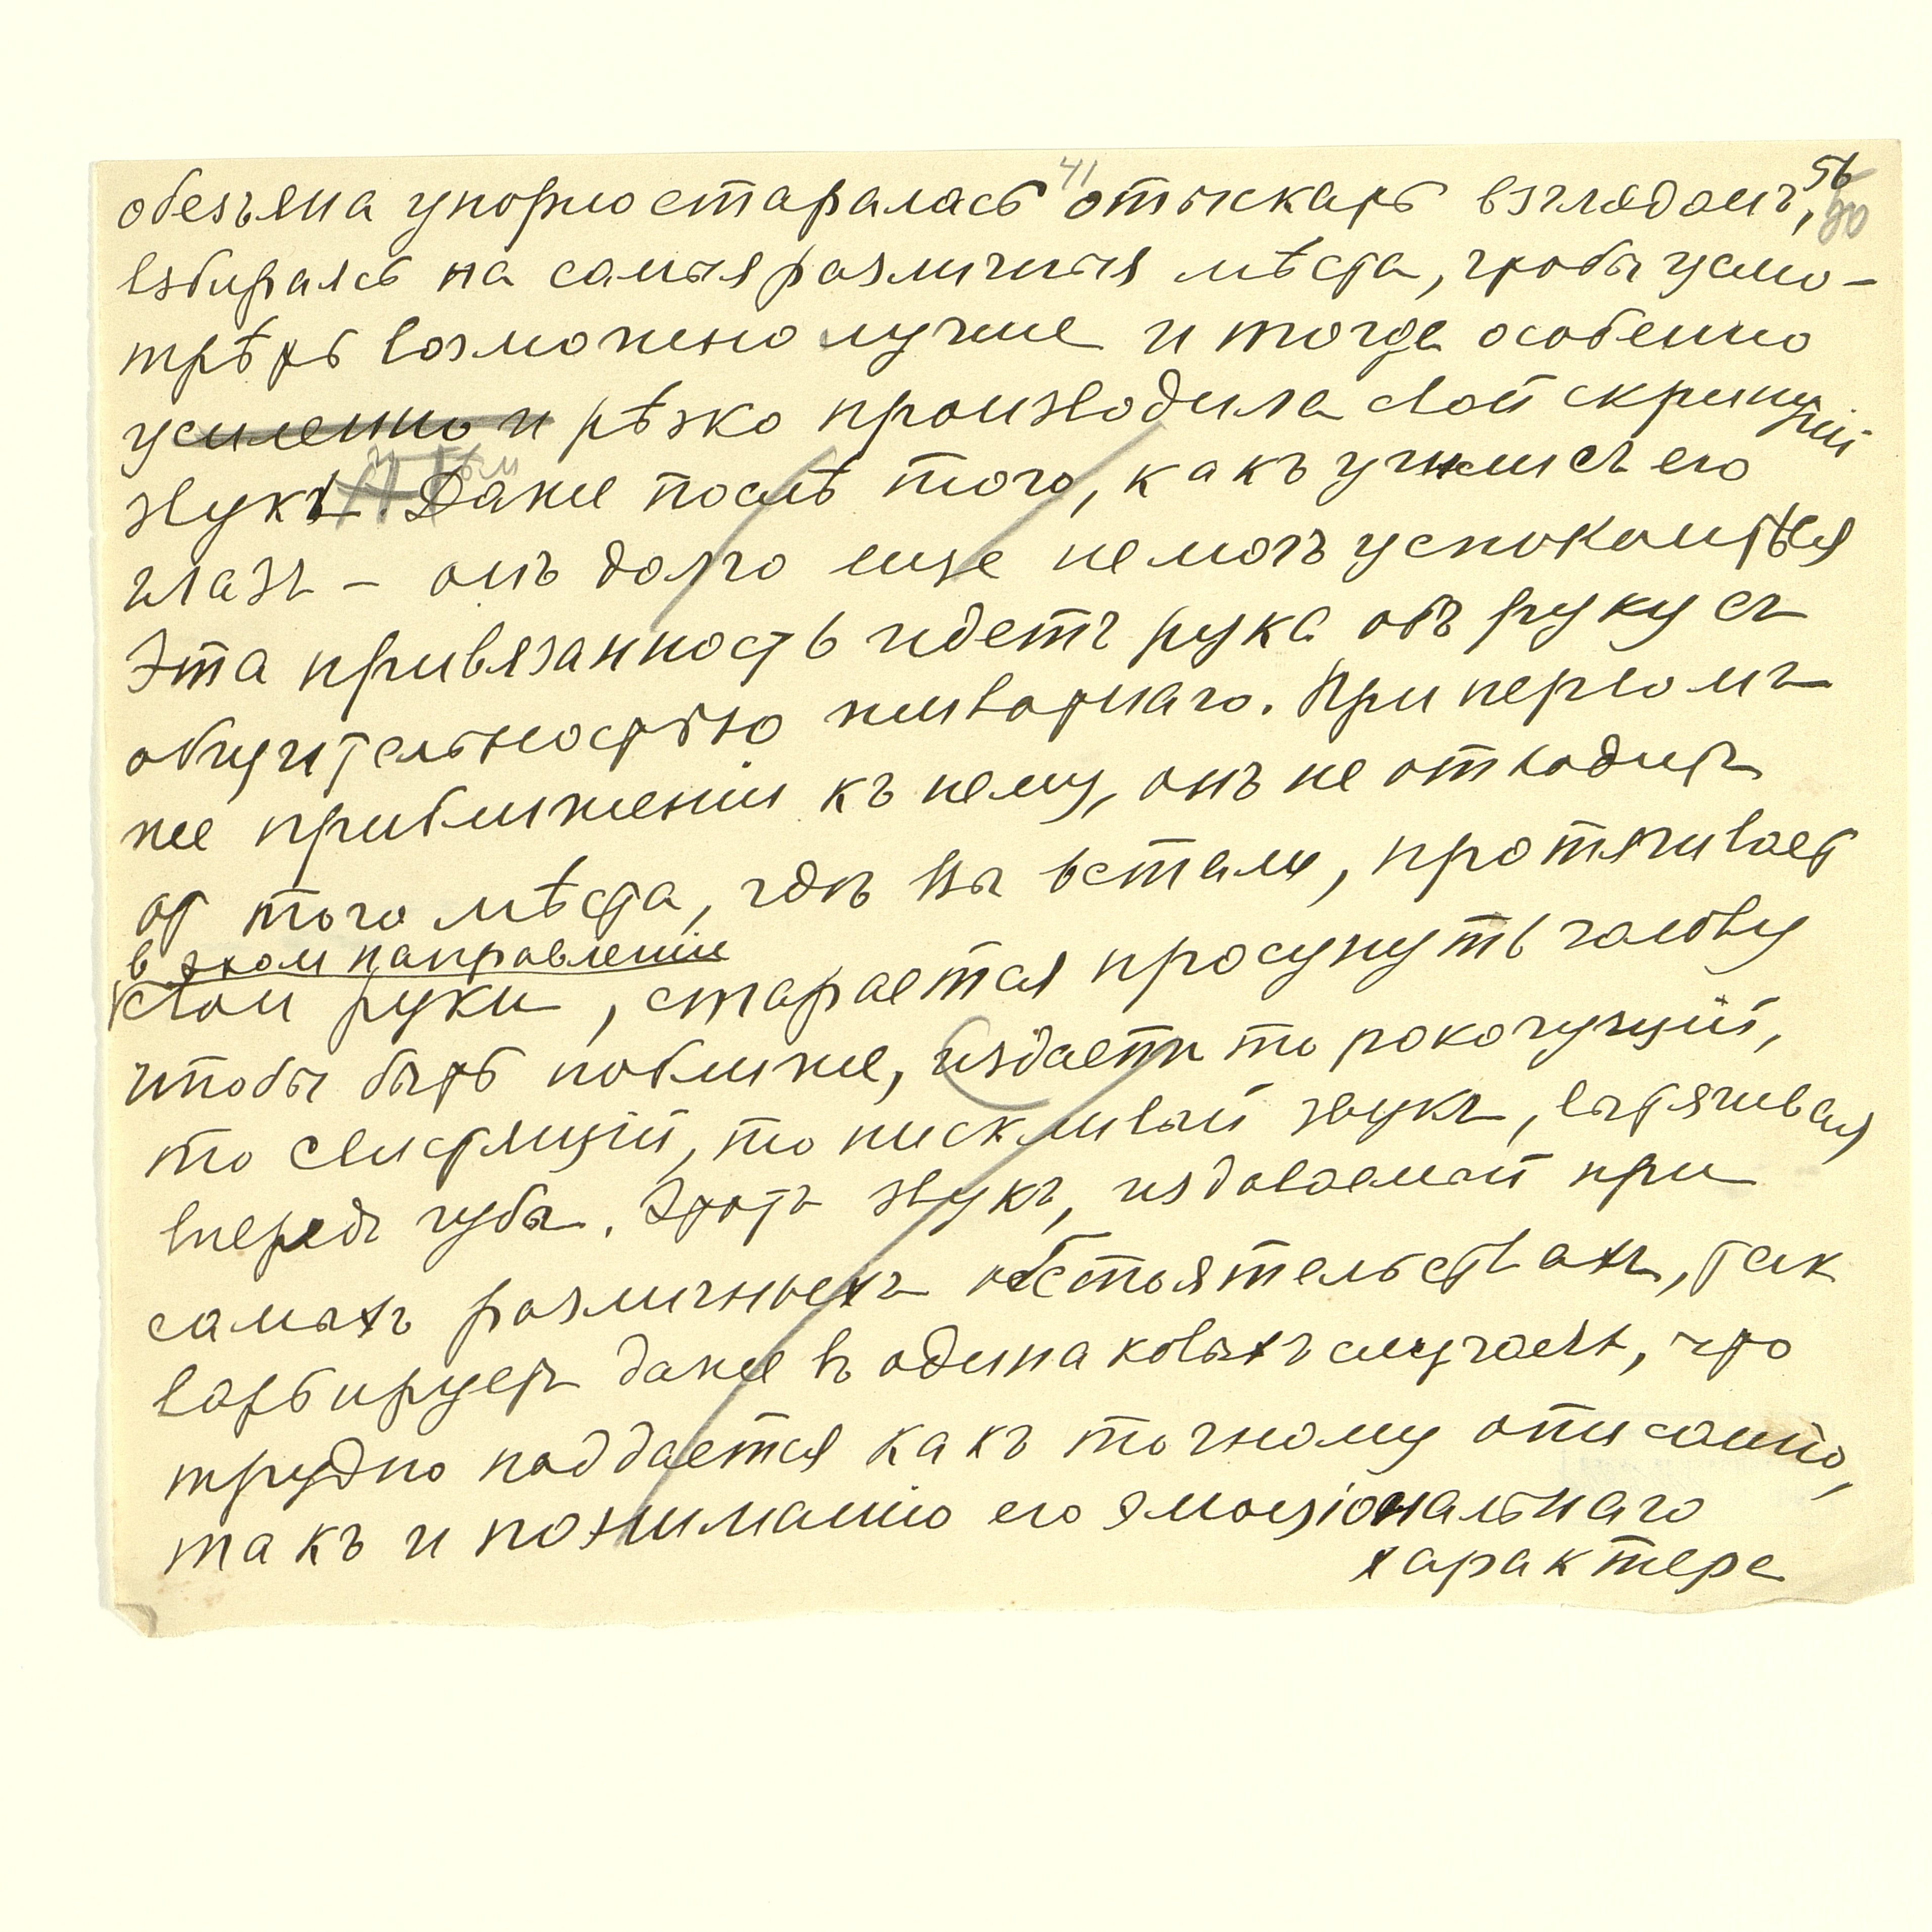 41
56
20
обезъяна упорно старалась отыскать взглядомъ,
взбираясь на самыя различныя мѣста, чтобы усмо-
трѣть возможно лучше и тогда особенно
усиленно и рѣзко производила свой скрипучій
звукъ. Даже послѣ того, какъ уносился съ его
глазъ – онъ долго еще не могъ успокоиться
Эта привязанность идетъ рука объ руку съ
общительностью животнаго. При первомъ
же приближеніи къ нему, онъ не отходитъ
от того мѣста, гдѣ Вы встали, протягивает
в этом направленіи
свои руки, старается просунуть голову
чтобы быть поближе, издаетъ то рокочущій,
то свистящій, то пискливый звукъ, вытягивая
впередъ губы. Этотъ звукъ, издаваемый при
самыхъ различныхъ обстоятельствахъ, так
варьируетъ даже въ одинаковыхъ случаяхъ, что
трудно поддается какъ точному описанію,
такъ и пониманію его эмоціональнаго
характера